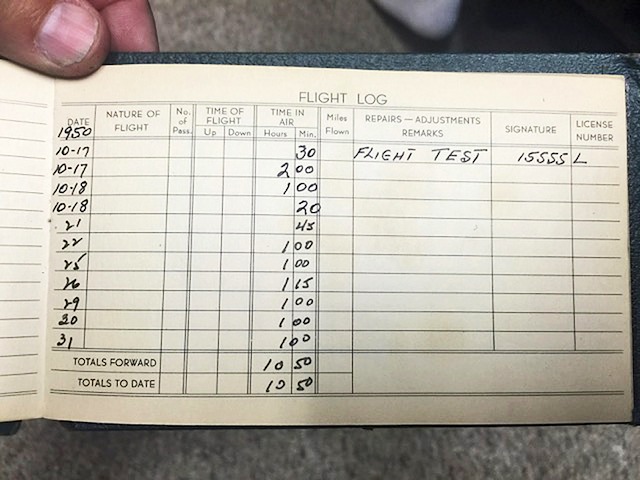 FLIGHT LOG
DATE NATURE OF FLIGHT No. of Pass. TIME OF FLIGHT Up Down TIME IN AIR Hours Min. Miles Flown REPAIRS — ADJUSTMENTS REMARKS SIGNATURE LICENSE NUMBER
1950
10-17 30 FLIGHT TEST 15555 L
10-17 2 00
10-18 1 00
10-18 20
21 45
22 1 00
25 1 00
26 1 15
29 1 00
30 1 00
31 1 00
TOTALS FORWARD 10 50
TOTALS TO DATE 10 50